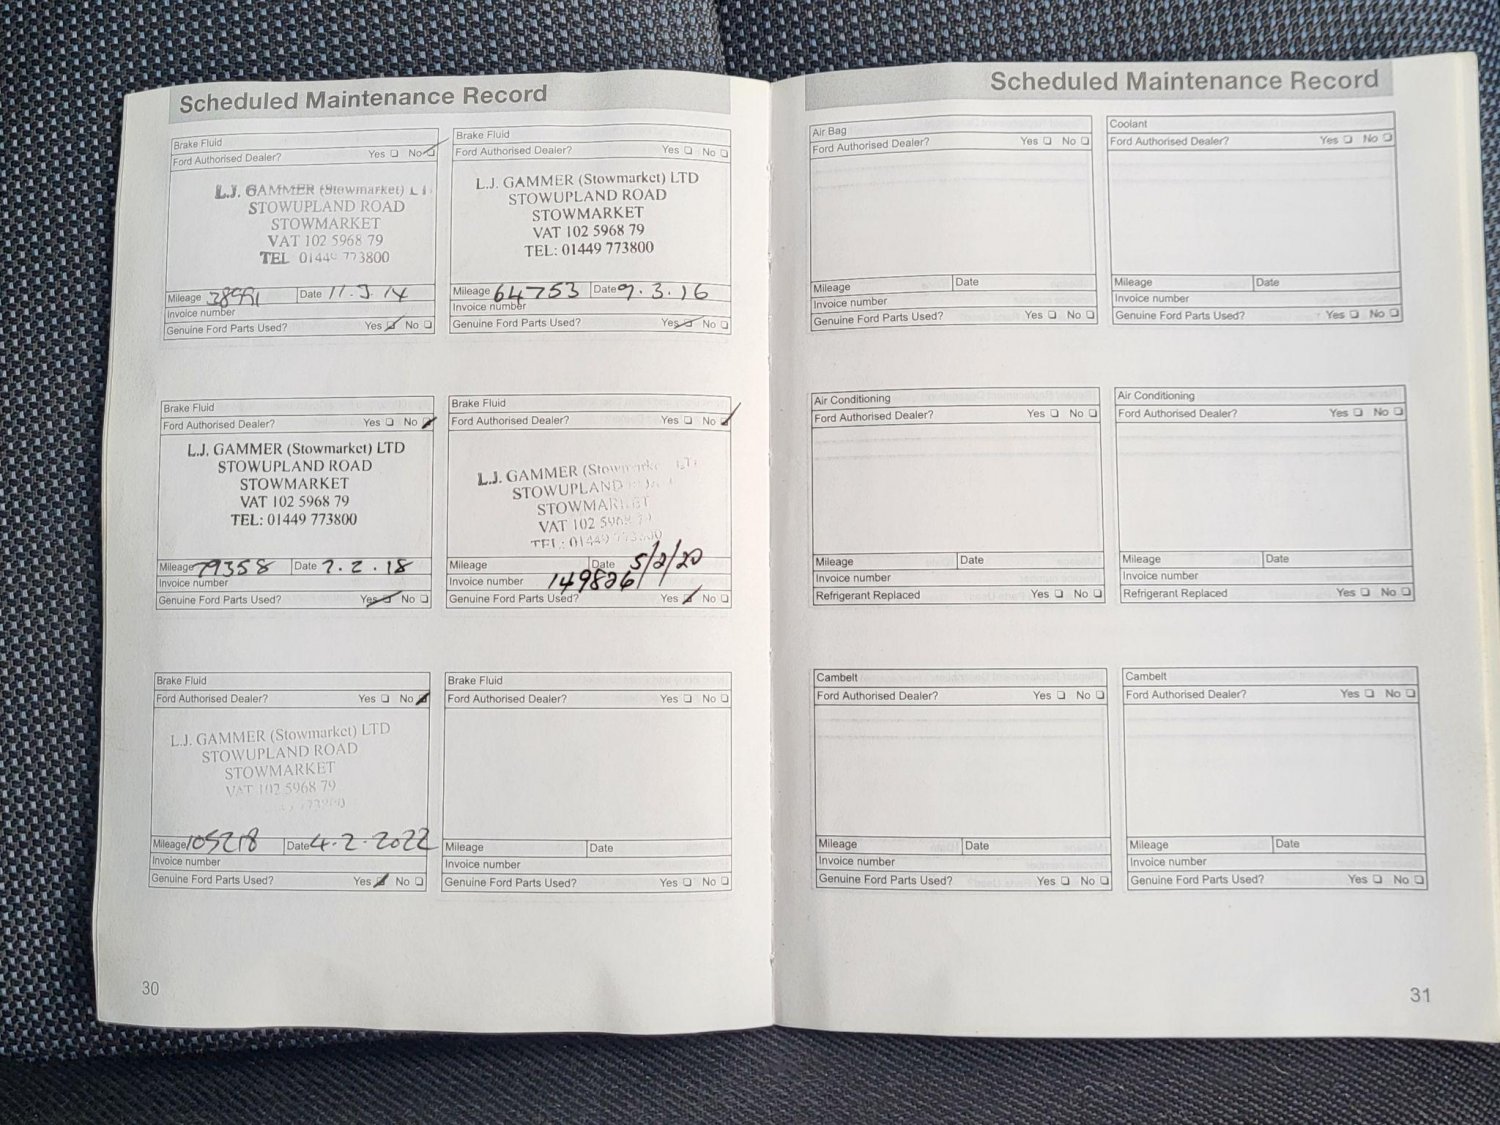 Scheduled Maintenance Record
Brake Fluid
Ford Authorised Dealer? Yes No
L.J. GAMMER (Stowmarket)
STOWUPLAND ROAD
STOWMARKET
VAT 102 5968 79
TEL 01449 773800
Mileage 38991 Date 11.3.14
Invoice number
Genuine Ford Parts Used? Yes No
Brake Fluid
Ford Authorised Dealer? Yes No
L.J. GAMMER (Stowmarket) LTD
STOWUPLAND ROAD
STOWMARKET
VAT 102 5968 79
TEL: 01449 773800
Mileage 64753 Date 9.3.16
Invoice number
Genuine Ford Parts Used? Yes No
Brake Fluid
Ford Authorised Dealer? Yes No
L.J. GAMMER (Stowmarket) LTD
STOWUPLAND ROAD
STOWMARKET
VAT 102 5968 79
TEL: 01449 773800
Mileage 79358 Date 7.2.18
Invoice number
Genuine Ford Parts Used? Yes No
Brake Fluid
Ford Authorised Dealer? Yes No
L.J. GAMMER
STOWUPLAND
STOWMARKET
VAT 102
TEL: 01449
Mileage Date 5/2/20
Invoice number 149826
Genuine Ford Parts Used? Yes No
Brake Fluid
Ford Authorised Dealer? Yes No
L.J. GAMMER (Stowmarket) LTD
STOWUPLAND ROAD
STOWMARKET
VAT 102 5968 79
Mileage 105218 Date 4.2.2022
Invoice number
Genuine Ford Parts Used? Yes No
Brake Fluid
Ford Authorised Dealer? Yes No
Mileage Date
Invoice number
Genuine Ford Parts Used? Yes No
30
Scheduled Maintenance Record
Air Bag
Ford Authorised Dealer? Yes No
Mileage Date
Invoice number
Genuine Ford Parts Used? Yes No
Coolant
Ford Authorised Dealer? Yes No
Mileage Date
Invoice number
Genuine Ford Parts Used? Yes No
Air Conditioning
Ford Authorised Dealer? Yes No
Mileage Date
Invoice number
Refrigerant Replaced Yes No
Air Conditioning
Ford Authorised Dealer? Yes No
Mileage Date
Invoice number
Refrigerant Replaced Yes No
Cambelt
Ford Authorised Dealer? Yes No
Mileage Date
Invoice number
Genuine Ford Parts Used? Yes No
Cambelt
Ford Authorised Dealer? Yes No
Mileage Date
Invoice number
Genuine Ford Parts Used? Yes No
31